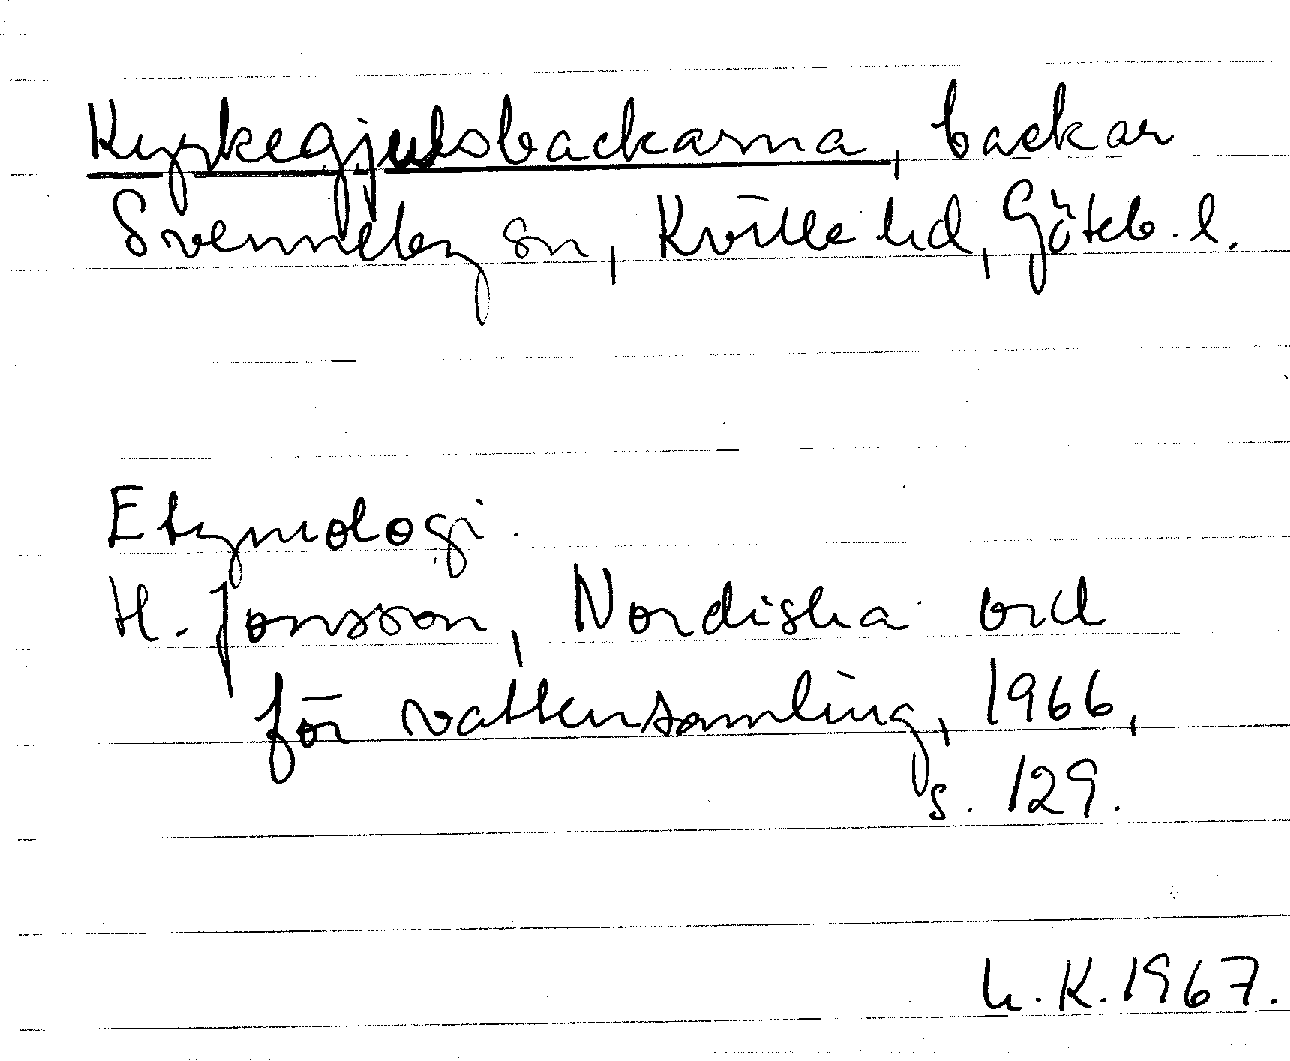 Kyrkegjulsbackarna, backar
Svenneby sn, Kville hd, Göteb. l.
Etymologi.
H. Jonsson, Nordiska ord
för vattensamling, 1966,
s. 129.
h. K. 1967.